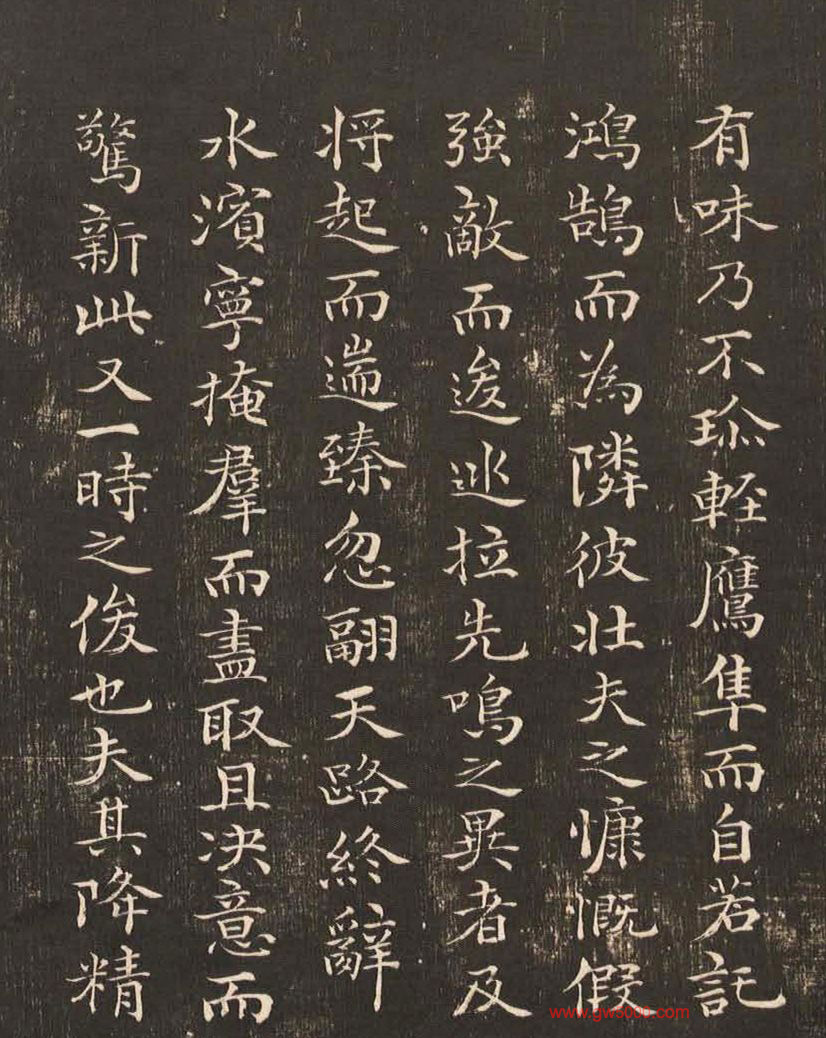 有味乃不珎輕鷹隼而自若託
鴻鵠而為隣彼壯夫之慷慨假
強敵而逡巡拉先鳴之異者及
将起而遄臻忽翮天路終辭
水濱寧掩羣而盡取且决意而
驚新此又一時之俊也夫其降精
www.gw5000.com